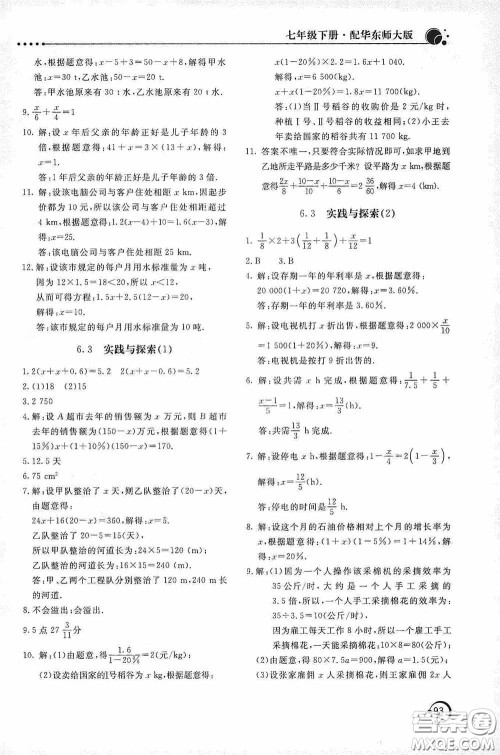 七年级下册·配华东师大版
水,根据题意得:x-5+3=50-x-8.解得甲水
池:x=30 t,乙水池:50-x=20 t.
答:甲水池原来有30 t水,乙水池原来有20 t水.
9. x/6+x/4=1
10. 解:设x年后父亲的年龄正好是儿子年龄的3
倍,根据题意得:41+x=3×(13+x),解得:
x=1.
答:1年后父亲的年龄正好是儿子年龄的3倍.
11. 解:设该电脑公司与客户住处相距x km.因起步
价都为10元,所以该公司与客户住处相距超过
4 km,根据题意得:
10+1.2(x-4)=10+1.6(x-3),解得:
x=25.
答:该电脑公司与客户住处相距25 km.
12. 解:设该市规定的每户月用水标准量为x吨,
因为12×1.5=18<20,所以x<12,
从而可得方程:
1.5x+2.5(12-x)=20,
解得:x=10.
答:该市规定的每户月用水标准量为10吨.
6.3 实践与探索(1)
1. 2(x+x+0.6)=5.2 2(x+x-0.6)=5.2
2. (1)18 (2)15
3. 2 750
4. 解:设A超市去年的销售额为x万元,则B超市
去年的销售额为(150-x)万元.根据题意得:
(1+15%)x+(1+10%)(150-x)=170.
5. 12.5天
6. 75 cm²
7. 解:设甲队整治了x天,则乙队整治了(20-x)
天,由题意得:
24x+16(20-x)=360,解得:x=5.
乙队整治了20-5=15(天).
所以甲队整治的河道长为:24×5=120(m);
乙队整治的河道长为:16×15=240(m).
答:甲、乙两个工程队分别整治了120 m,240 m长
的河道.
8. 不会溢出.
9. 5点27 3/11分
10. 解:(1)由题意,得1.6/(1-20%)=2(元/kg);
(2)设卖给国家的Ⅰ号稻谷为x kg,根据题意得:
x(1-20%)×2.2=1.6x+1 040.
解得:x=6 500(kg).
x+(1-20%)x=1.8x=11 700(kg).
答:(1)当Ⅱ号稻谷的收购价是2元/kg时,
种植Ⅰ号、Ⅱ号稻谷的收益相同.(2)小王去
年卖给国家的稻谷共有11 700 kg.
11. 答案不唯一,只要符合实际情况即可,如求甲地到
乙地所走平路是多少千米?设平路为x km,根据
6.3 实践与探索(2)
1. 1/8×2+3(1/12+1/8)+x/12=1
2. B 3. B
4. 解:设存期一年的年利率是x,根据题意得:
20 000(1+x)=20 720,解得:x=3.60%.
答:存期一年的年利率是3.60%.
5. 解:设电视机按x折出售,根据题意得:2 000×x/10
=1 500(1+20%),解得:x=9.
答:电视机是按打9折出售的.
6. 解:设共需x h完成,根据题意得:1/7.5+1/5+
(x-1)/5=1,解得:x=13/3(h).
答:共需13/3 h完成.
7. 解:设停电x h,根据题意得:1-x/4=2(1-x/3),
解得:x=12/5(h).
答:停电的时间是12/5 h.
8. 解:设这个月的石油价格相对上个月的增长率为
x,根据题意得:
(1+x)(1-5%)=1+14%,解得:x=20%.
9. 解:(1)因为一个人操作该采棉机的采摘效率为
35公斤/时,大约是一个人手工采摘的
3.5倍,所以一个人手工采摘棉花的效率为:
35÷3.5=10(公斤/时).
因为雇工每天工作8小时,所以一个雇工手工
采摘棉花,一天能采摘棉花:10×8=80(公斤).
(2)由题意,得80×7.5a=900,解得:a=1.5.
(3)设张家雇佣x人采摘棉花,则王家雇佣2x人
93